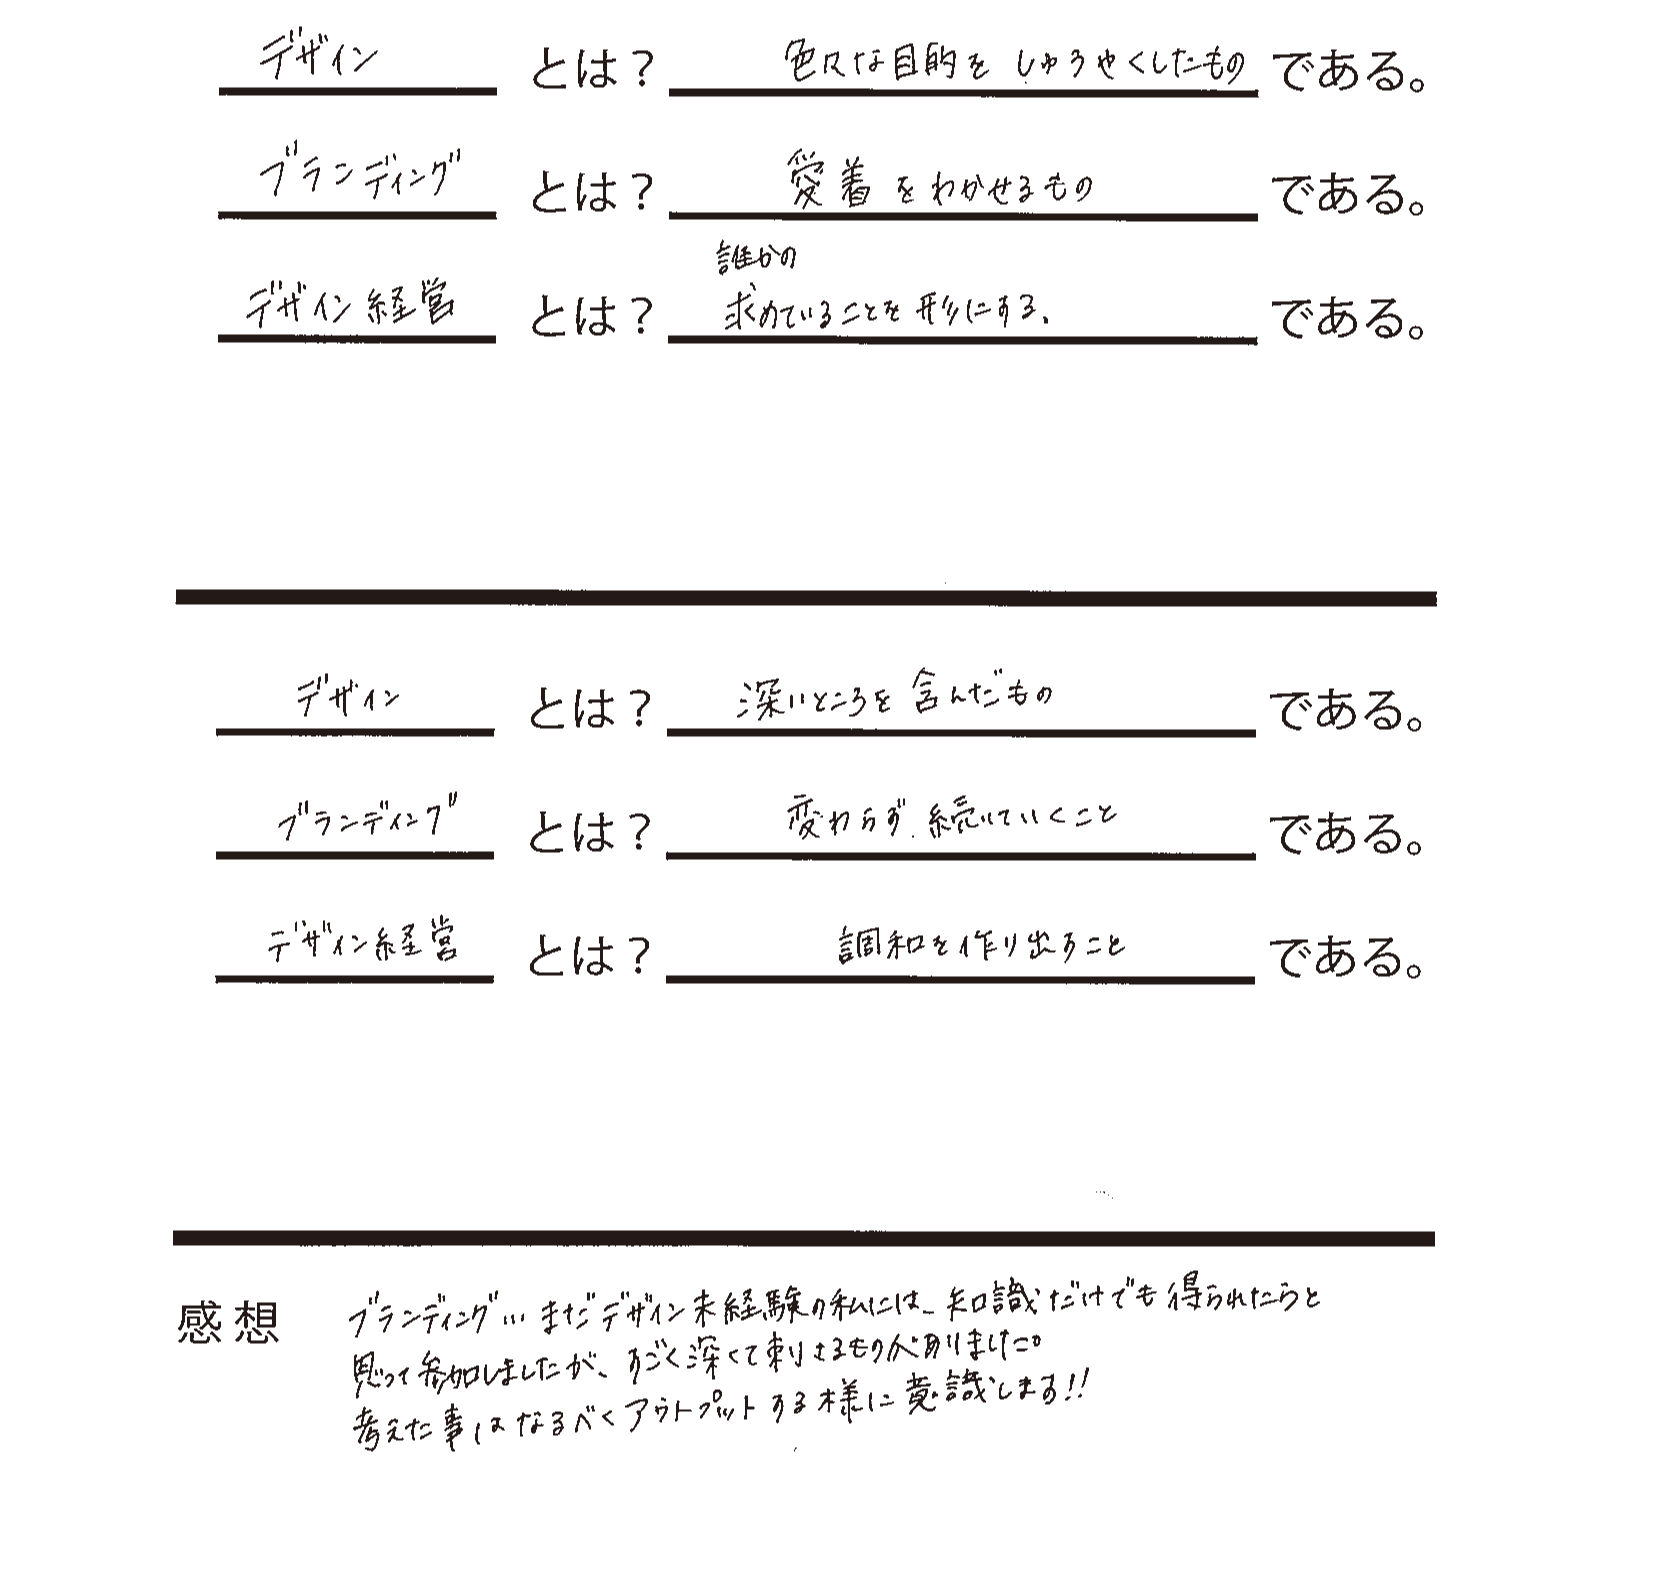 デザイン とは？ 色々な目的を しゅうやくしたもの である。
ブランディング とは？ 愛着をわかせるもの である。
誰かの
デザイン経営 とは？ 求めていることを形にする。 である。
デザイン とは？ 深いところを含んだもの である。
ブランディング とは？ 変わらず、続いていくこと である。
デザイン経営 とは？ 調和を作り出すこと である。
感想 ブランディング…まだデザイン未経験の私には、知識だけでも得られたらと
思って参加しましたが、すごく深くて刺さるものがありました。
考えた事はなるべくアウトプットする様に意識します!!